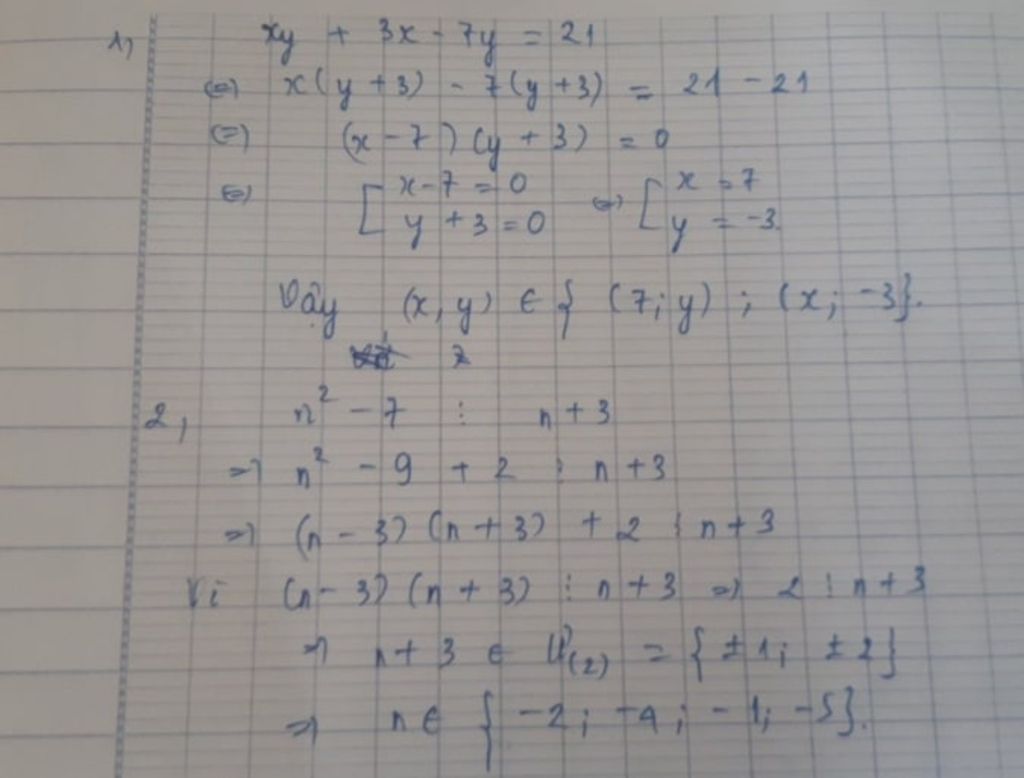 1, xy + 3x - 7y = 21
(=) x(y + 3) - 7(y + 3) = 21 - 21
(=) (x - 7)(y + 3) = 0
(=) [ x - 7 = 0 (=) [ x = 7
y + 3 = 0 y = -3
Vậy (x, y) ∈ { (7; y) ; (x; -3}.
2, n² - 7 ⋮ n + 3
=> n² - 9 + 2 ⋮ n + 3
=> (n - 3)(n + 3) + 2 ⋮ n + 3
Vì (n - 3)(n + 3) ⋮ n + 3 => 2 ⋮ n + 3
=> n + 3 ∈ Ư(2) = { ±1; ±2}
=> n ∈ { -2; -4; -1; -5}.